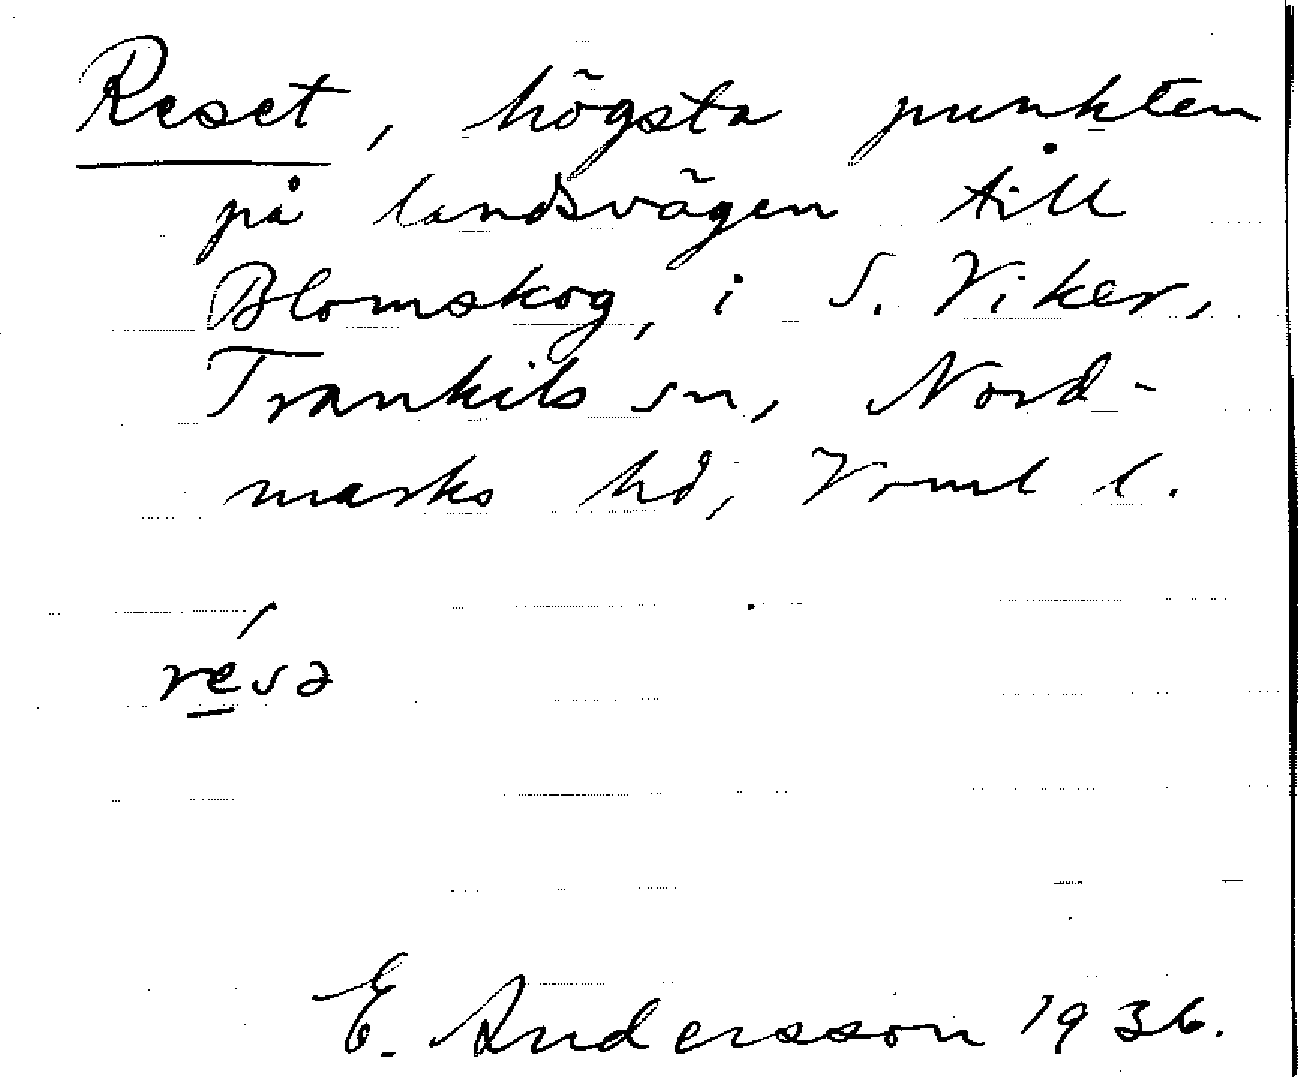 Reset, högsta punkten
på landsvägen till
Blomskog, i S. Viker,
Trankils sn, Nord-
marks hd, Vrml l.
résə
E. Andersson 1936.